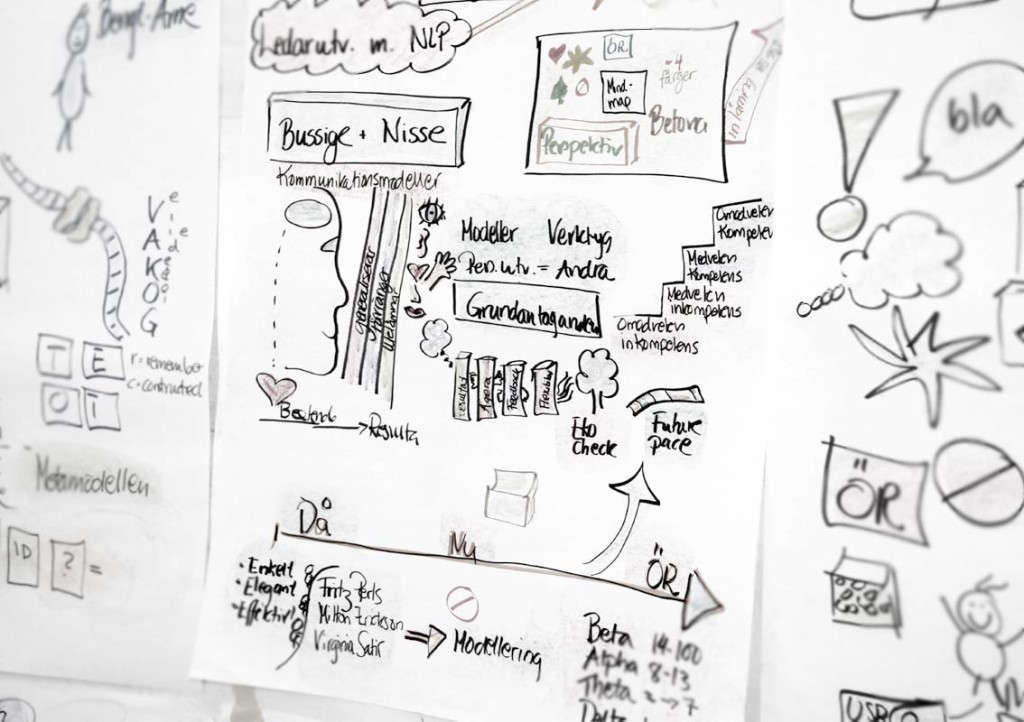 Bengt-Arne
Ledarutv. m. NLP
ÖR
4
färger
Mind-
map
Betona
Perspektiv
Bussige + Nisse
Kommunikationsmodeller
bla
V
A
K
O
G
Modeller Verktyg
Pers. utv. = Andra
Grundantaganden
Generaliserar
Förvränger
Omedveten
Kompetens
Medveten
Kompetens
Medveten
inkompetens
Omedveten
inkompetens
T E
O T
r = remember
c = constructed
Resultat
Agera
Feedback
Flexibel
Eko
Check
Future
pace
Beteende
Resultat
Metamodellen
ID ? =
ÖR
Då
Nu
ÖR
• Enkelt
• Elegant
• Effektivt
Fritz Perls
Milton Erickson
Virginia Satir
Modellering
Beta 14-100
Alpha 8-13
Theta
Delta
USB